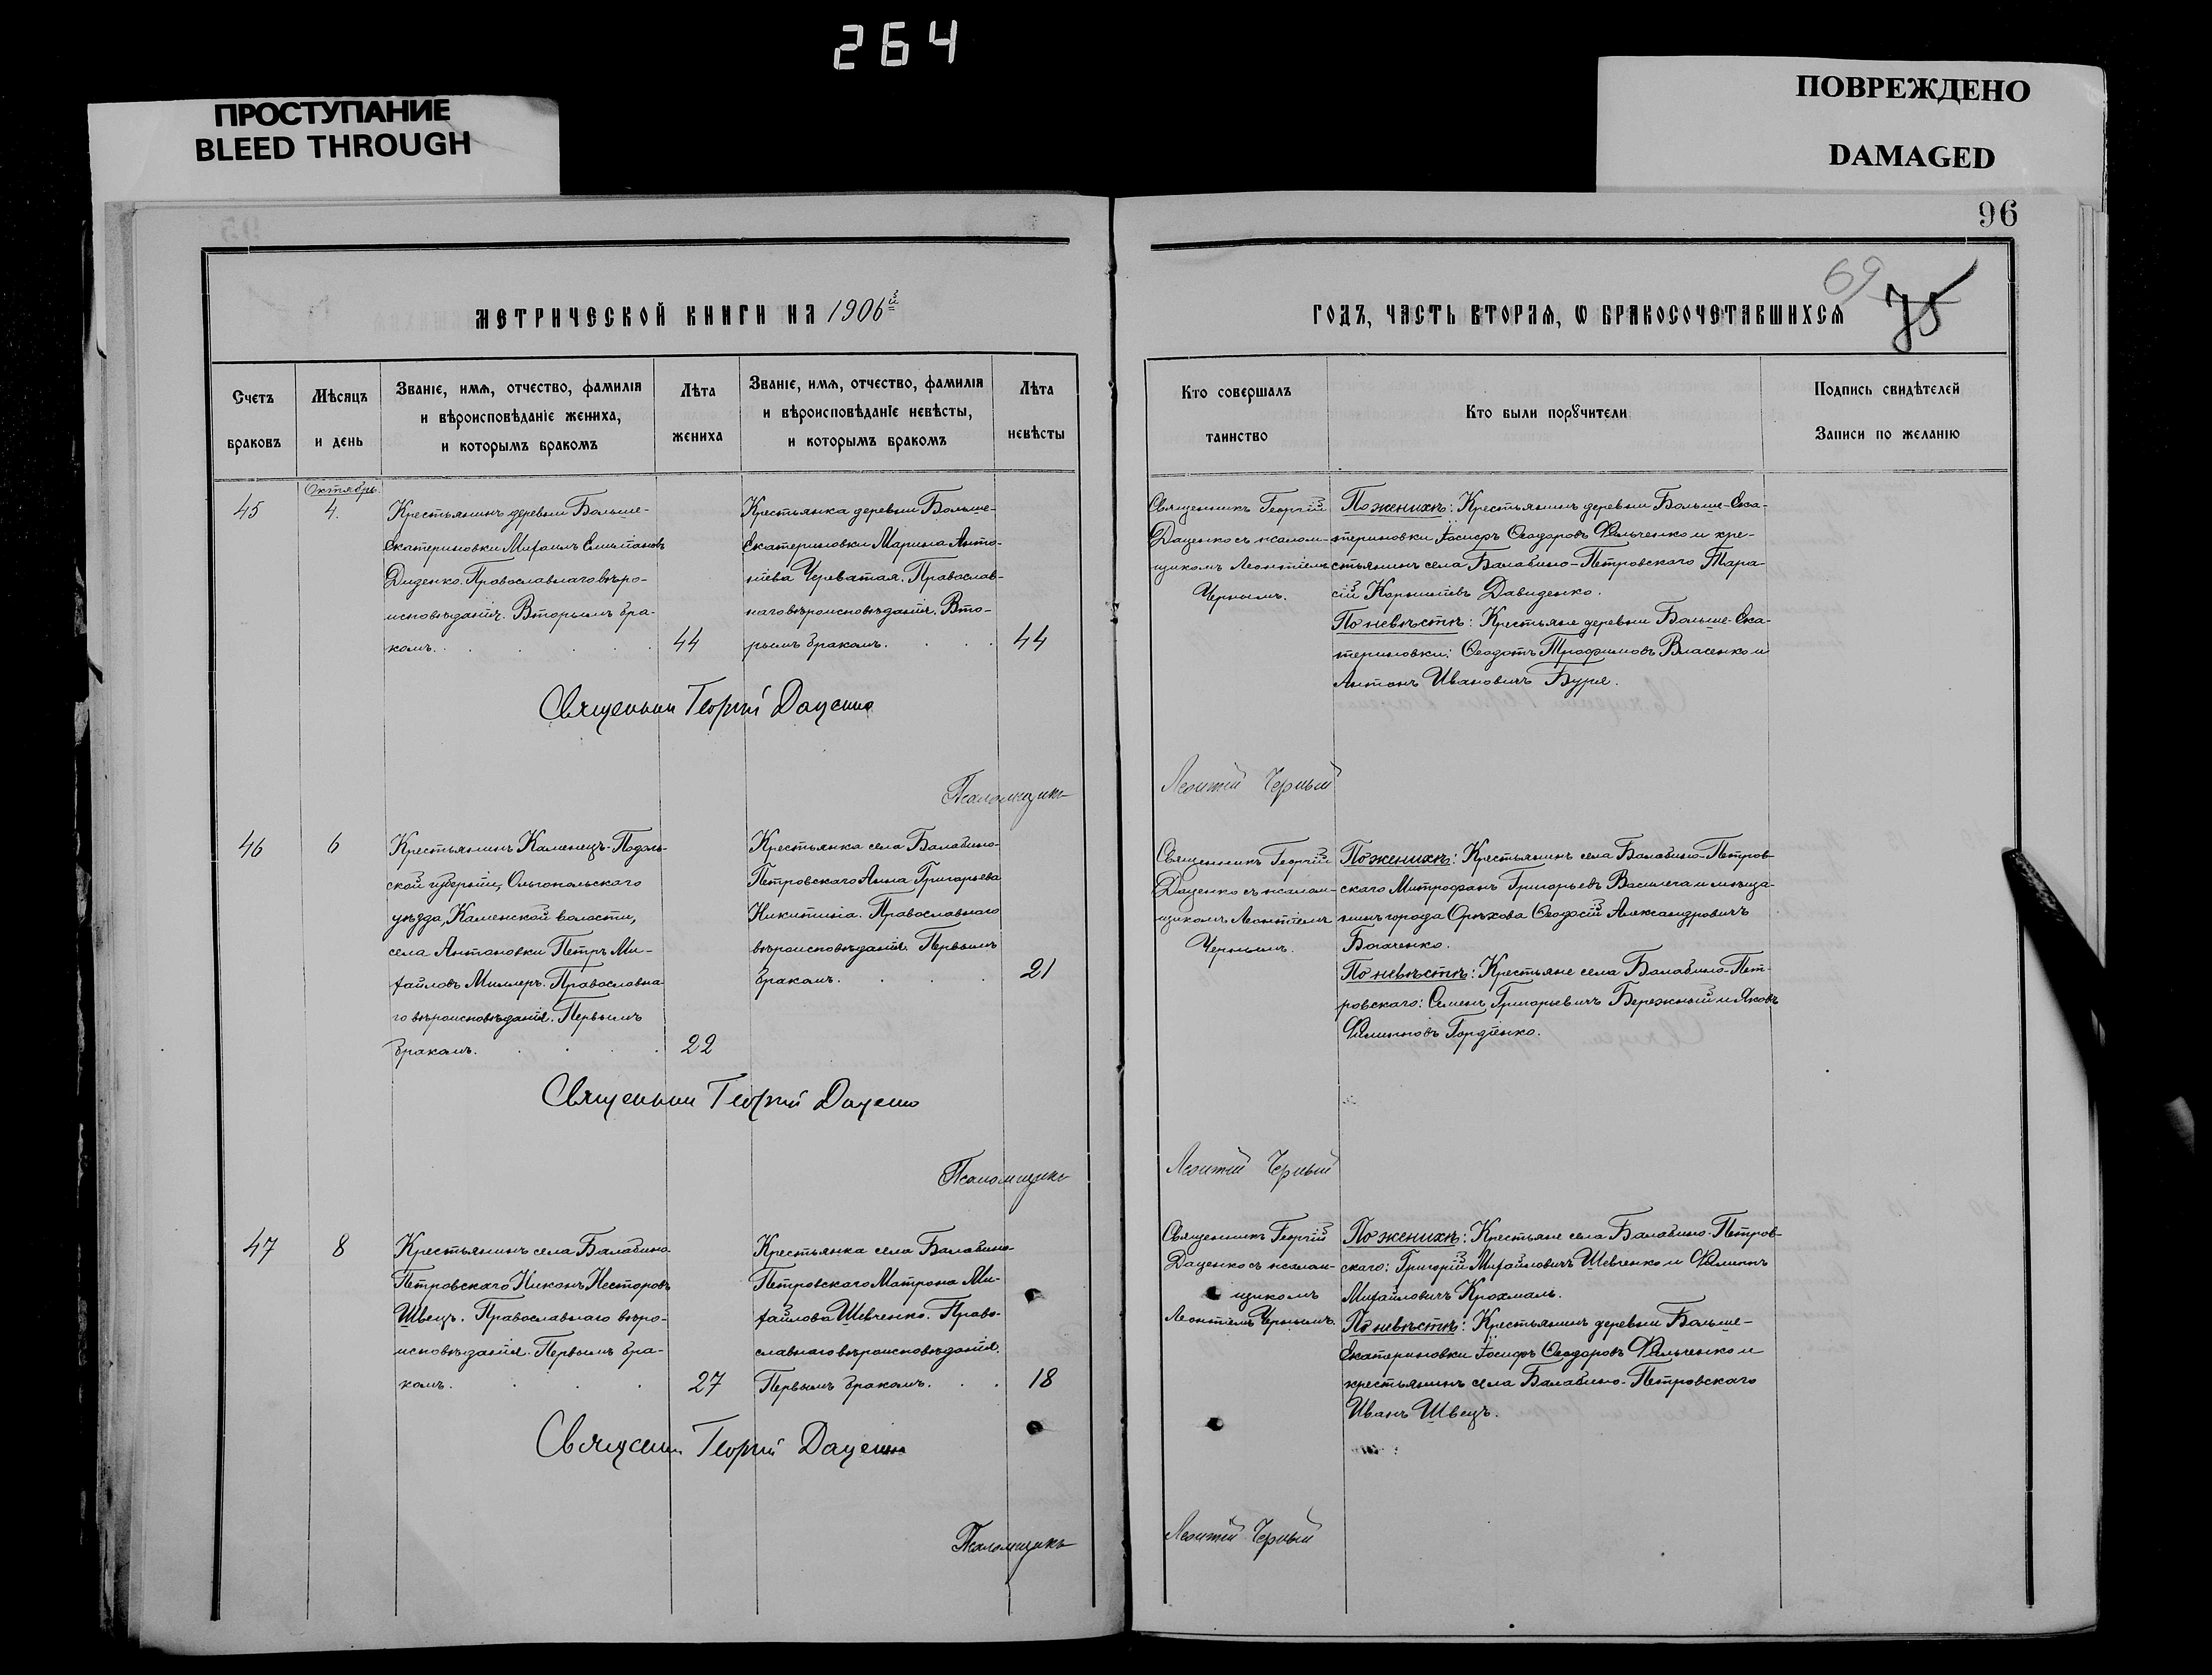 264
ПРОСТУПАНИЕ
BLEED THROUGH
ПОВРЕЖДЕНО
DAMAGED
96
69
75
МЕТРИЧЕСКОЙ КНИГИ НА 1906й
ГОДЪ, ЧАСТЬ ВТОРАѦ, Ѡ БРАКОСОЧЕТАВШИХСѦ
Счетъ
браковъ
Мѣсяцъ
и день
Званіе, имѧ, отчество, фамилія
и вѣроисповѣданіе жениха,
и которымъ бракомъ
Лѣта
жениха
Званіе, имѧ, отчество, фамилія
и вѣроисповѣданіе невѣсты,
и которымъ бракомъ
Лѣта
невѣсты
Кто совершалъ
таинство
Кто были порꙋчители
Подпись свидѣтелей
Записи по желанію
45
Октябрь.
4.
Крестьянинъ деревни Больше-
Екатериновки Михаилъ Емиліановъ
Диденко. Православнаго вѣро-
исповѣданія. Вторымъ бра-
комъ.
44
Крестьянка деревни Больше-
Екатериновки Марина Анто-
ніева Череватая. Православ-
наго вѣроисповѣданія. Вто-
рымъ бракомъ.
44
Священникъ Георгій
Даценко съ псалом-
щикомъ Леонтіемъ
Чернымъ.
По женихѣ: Крестьянинъ деревни Больше-Ека-
териновки Іосифъ Ѳеодоровъ Фильченко и кре-
стьянинъ села Балабино-Петровскаго Тара-
сій Корниліевъ Давиденко.
По невѣстѣ: Крестьяне деревни Больше-Ека-
териновки: Ѳеодотъ Трофимовъ Власенко и
Антонъ Ивановичъ Буря.
Священник Георгій Даценко
Псаломщикъ
Леонтій Черный
46
6
Крестьянинъ Каменецъ-Подоль-
ской губерніи, Ольгопольскаго
уѣзда, Каменской волости,
села Антоновки Петръ Ми-
хайловъ Миллеръ. Православна-
го вѣроисповѣданія. Первымъ
бракомъ.
22
Крестьянка села Балабино-
Петровскаго Анна Григорьева
Никитина. Православнаго
вѣроисповѣданія. Первымъ
бракомъ.
21
Священникъ Георгій
Даценко съ псалом-
щикомъ Леонтіемъ
Чернымъ.
По женихѣ: Крестьянинъ села Балабино-Петров-
скаго Митрофанъ Григорьевъ Василега и мѣща-
нинъ города Орѣхова Ѳеодосій Александровичъ
Богаченко.
По невѣстѣ: Крестьяне села Балабино-Пет-
ровскаго: Семенъ Григорьевичъ Бережный и Яковъ
Филипповъ Гордіенко.
Священник Георгій Даценко
Псаломщикъ
Леонтій Черный
47
8
Крестьянинъ села Балабино-
Петровскаго Никонъ Несторовъ
Швецъ. Православнаго вѣро-
исповѣданія. Первымъ бра-
комъ.
27
Крестьянка села Балабино-
Петровскаго Матрона Ми-
хайлова Шевченко. Право-
славнаго вѣроисповѣданія.
Первымъ бракомъ.
18
Священникъ Георгій
Даценко съ псалом-
щикомъ
Леонтіемъ Чернымъ.
По женихѣ: Крестьяне села Балабино-Петров-
скаго: Григорій Михайловичъ Шевченко и Филиппъ
Михайловичъ Крохмаль.
По невѣстѣ: Крестьянинъ деревни Больше-
Екатериновки Іосифъ Ѳеодоровъ Фильченко и
крестьянинъ села Балабино-Петровскаго
Иванъ Швецъ.
Священ Георгій Даценко
Псаломщикъ
Леонтій Черный